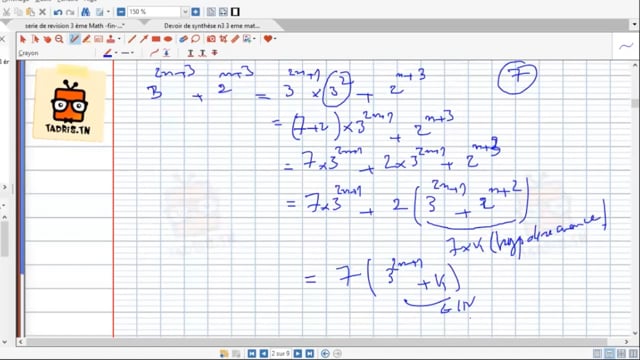 150 %
serie de revision 3 ème Math -fin-...
Devoir de synthèse n3 3 eme mat...
Crayon
3^{2n+3} + 2^{n+3} = 3^{2n+1} × 3^2 + 2^{n+3}
7
= (7+2) × 3^{2n+1} + 2^{n+3}
= 7×3^{2n+1} + 2×3^{2n+1} + 2^{n+3}
= 7×3^{2n+1} + 2 ( 3^{2n+1} + 2^{n+2} )
7×K
= 7 ( 3^{2n+1} + K )
∈ IN
TADRIS.TN
2 sur 9